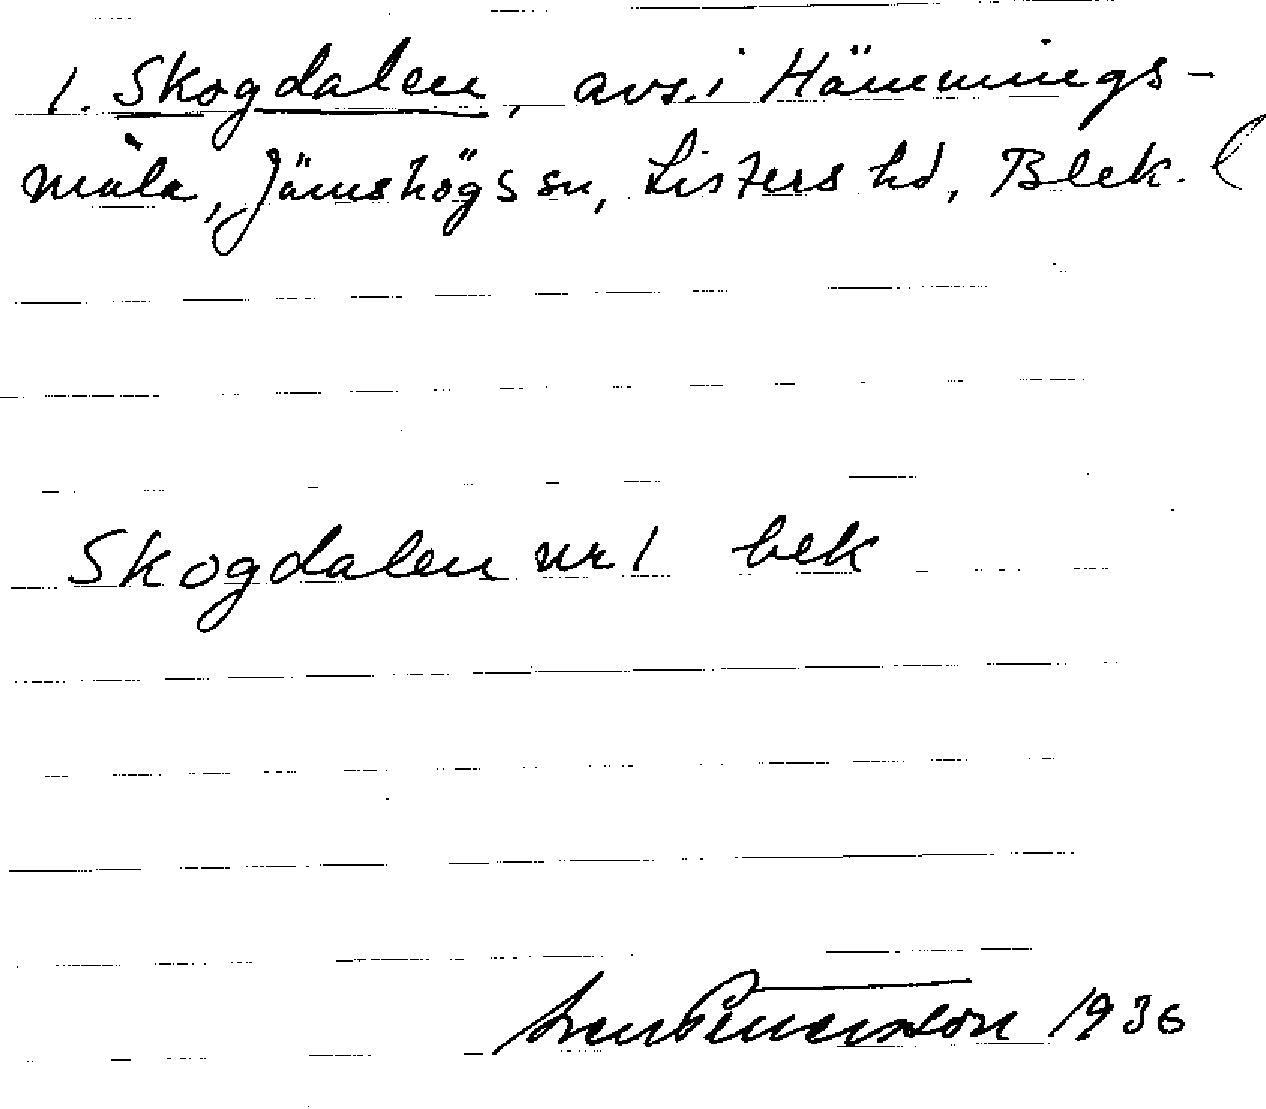 1. Skogdalen, avs. i Hämmings-
måla, Jämshögs sn, Listers hd, Blek. l
Skogdalen nr 1 bek
1936